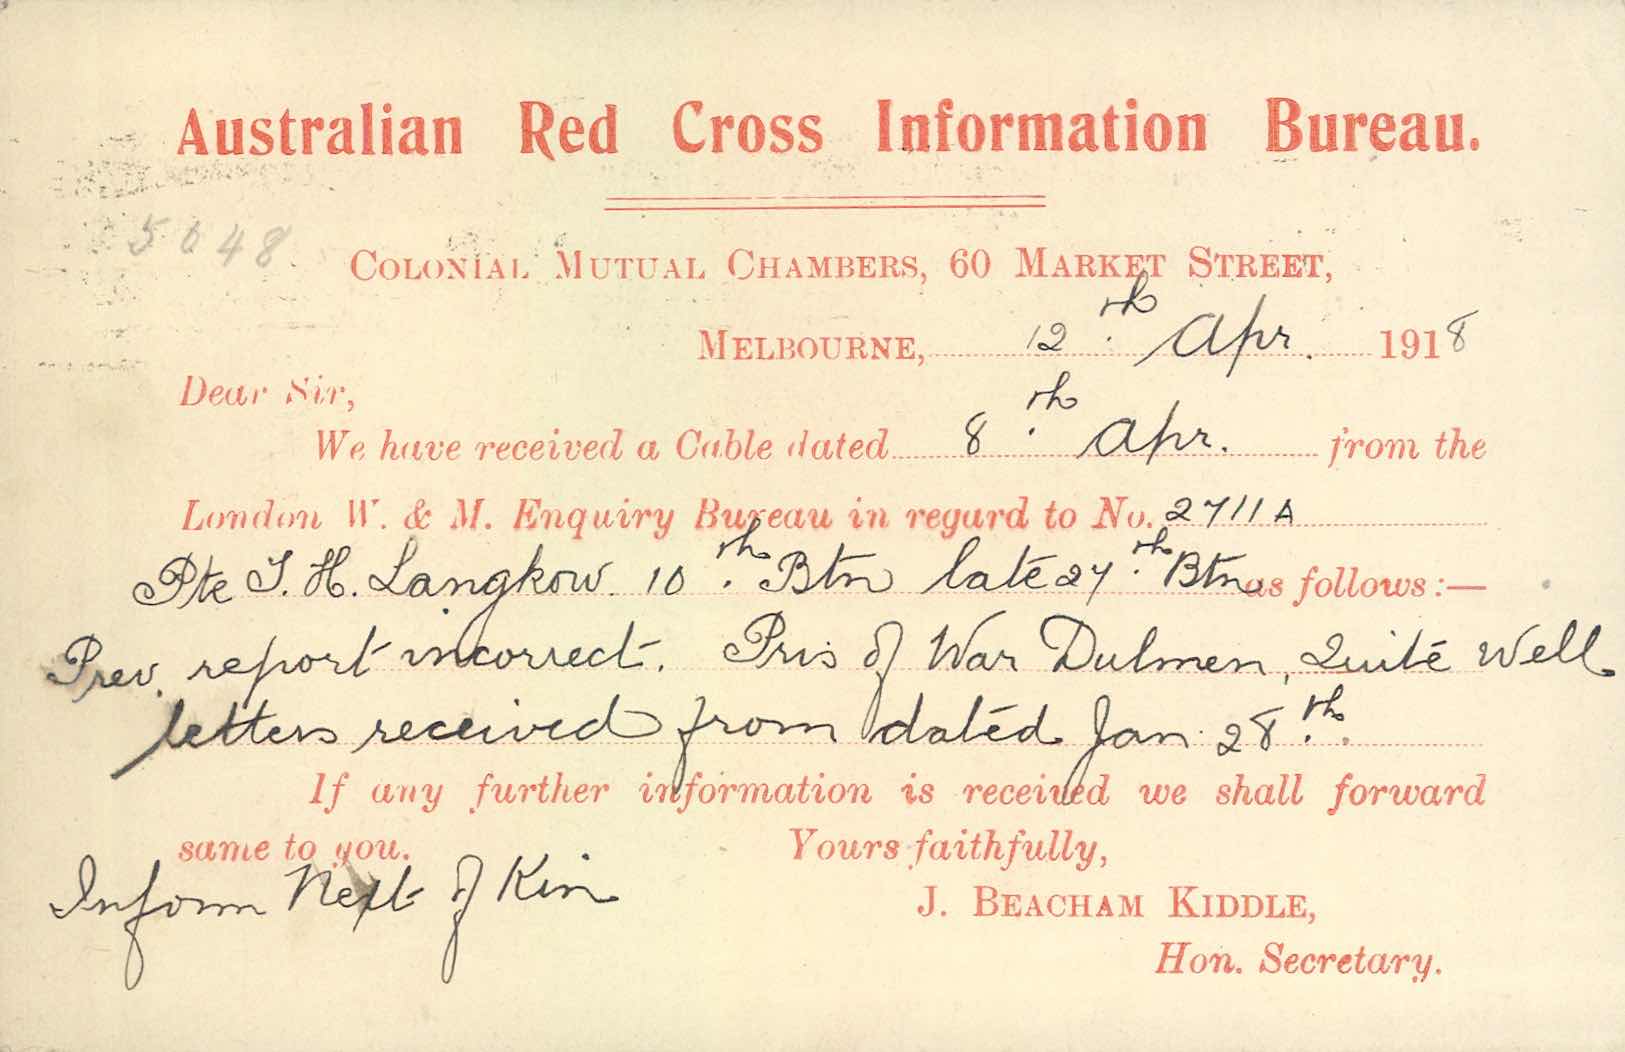 Australian Red Cross Information Bureau.
5648
COLONIAL MUTUAL CHAMBERS, 60 MARKET STREET,
MELBOURNE, 12th Apr. 1918
Dear Sir,
We have received a Cable dated 8th Apr. from the
London W. & M. Enquiry Bureau in regard to No. 2711A
Pte T. H. Langkow. 10th Btn late 27th Btn as follows:—
Prev. report incorrect. Pris of War Dulmen, Quite well
letters received from dated Jan 28th.
If any further information is received we shall forward
same to you. Yours faithfully,
Inform Next of Kin
J. BEACHAM KIDDLE,
Hon. Secretary.